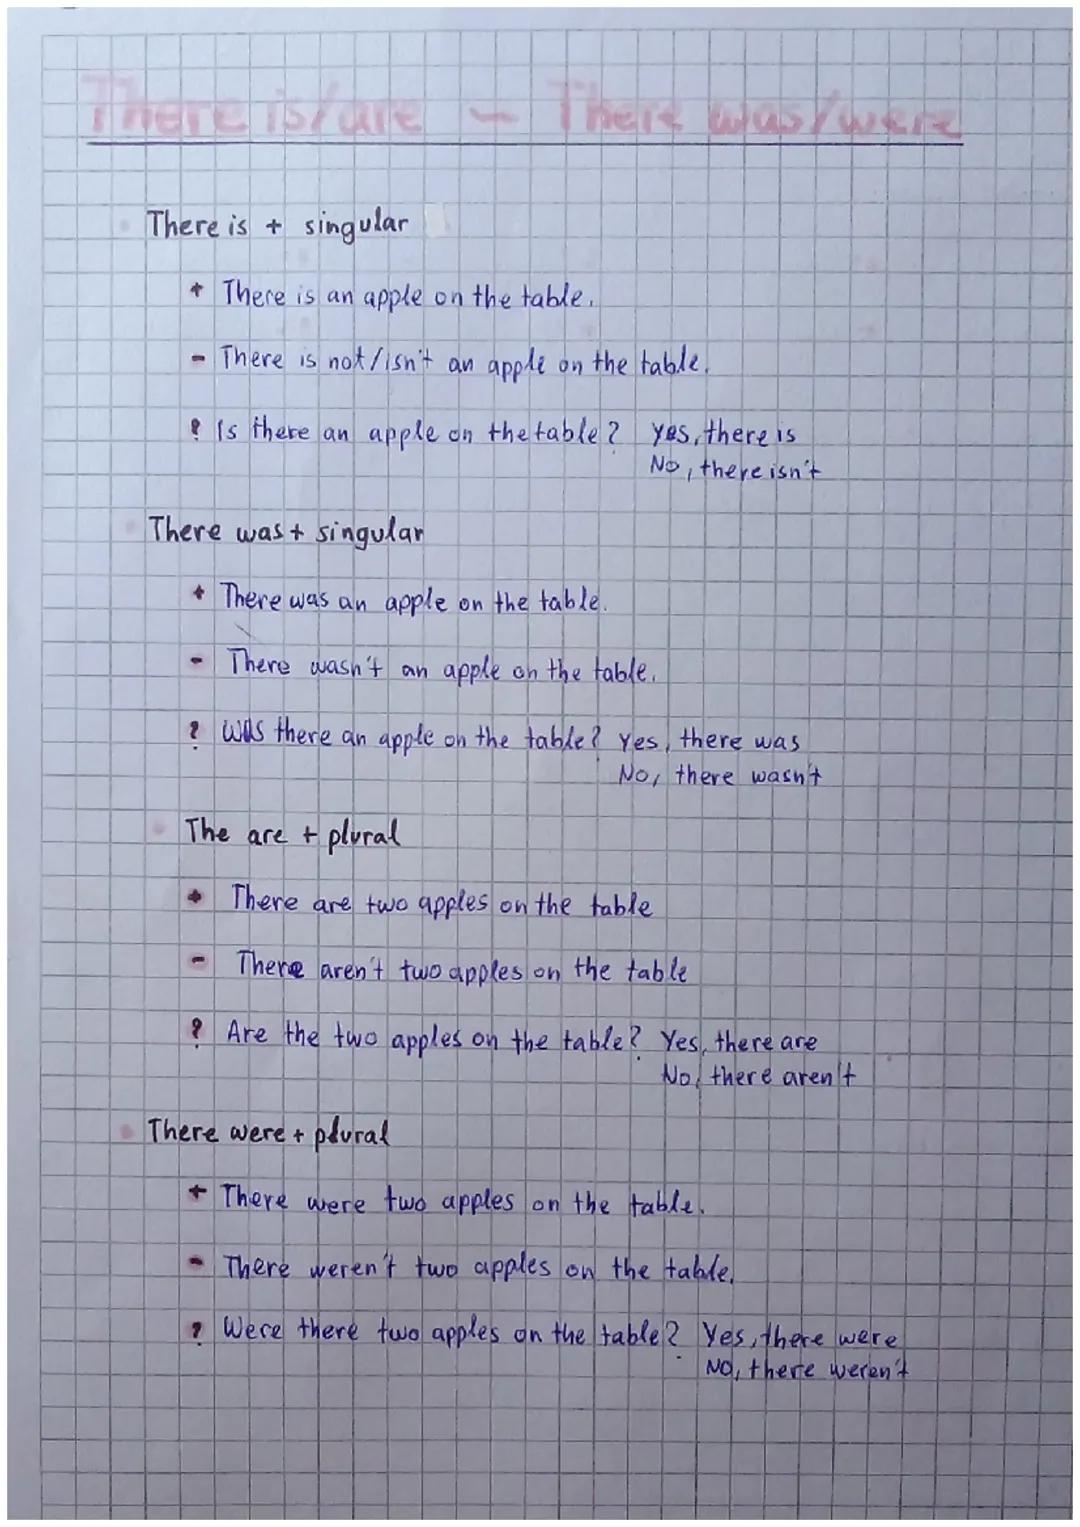 There is/are - There was/were
There is + singular
+ There is an apple on the table.
- There is not/isn't an apple on the table.
? Is there an apple on the table? Yes, there is
No, there isn't
There was + singular
+ There was an apple on the table.
- There wasn't an apple on the table.
? Was there an apple on the table? Yes, there was
No, there wasn't
The are + plural
+ There are two apples on the table
- There aren't two apples on the table
? Are the two apples on the table? Yes, there are
No, there aren't
There were + plural
+ There were two apples on the table.
- There weren't two apples on the table.
? Were there two apples on the table? Yes, there were
No, there weren't